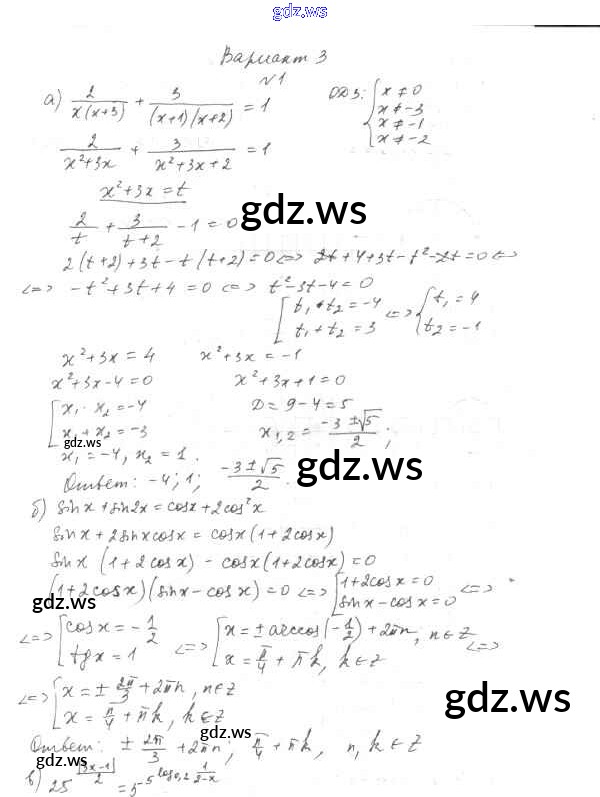 gdz.ws
Вариант 3
№1
а) 2/(x(x+3)) + 3/((x+1)(x+2)) = 1 ОДЗ: { x ≠ 0
x ≠ -3
x ≠ -1
x ≠ -2
2/(x²+3x) + 3/(x²+3x+2) = 1
x²+3x = t
gdz.ws
2/t + 3/(t+2) - 1 = 0
2(t+2)+3t-t(t+2)=0 <=> 2t+4+3t-t²-2t=0 <=>
<=> -t²+3t+4=0 <=> t²-3t-4=0
[ t₁·t₂=-4 <=> { t₁=4
t₁+t₂=3 t₂=-1
x²+3x=4 x²+3x=-1
x²+3x-4=0 x²+3x+1=0
[ x₁·x₂=-4 D=9-4=5
x₁+x₂=-3 x₁,₂=(-3±√5)/2;
gdz.ws
x₁=-4, x₂=1.
gdz.ws
Ответ: -4; 1; (-3±√5)/2.
б) sinx+sin2x=cosx+2cos²x
sinx+2sinxcosx=cosx(1+2cosx)
sinx(1+2cosx)-cosx(1+2cosx)=0
(1+2cosx)(sinx-cosx)=0 <=> [ 1+2cosx=0 <=>
sinx-cosx=0
gdz.ws
<=> [ cosx=-1/2 <=> [ x=±arccos(-1/2)+2πn, n∈Z <=>
tgx=1 x=π/4+πk, k∈Z
<=> [ x=±2π/3+2πn, n∈Z
x=π/4+πk, k∈Z
gdz.ws
Ответ: ±2π/3+2πn; π/4+πk, n,k∈Z
gdz.ws
в) 25^(|3x-1|/2) = 5^(5^(log₀,₂ 1/(2-x)))